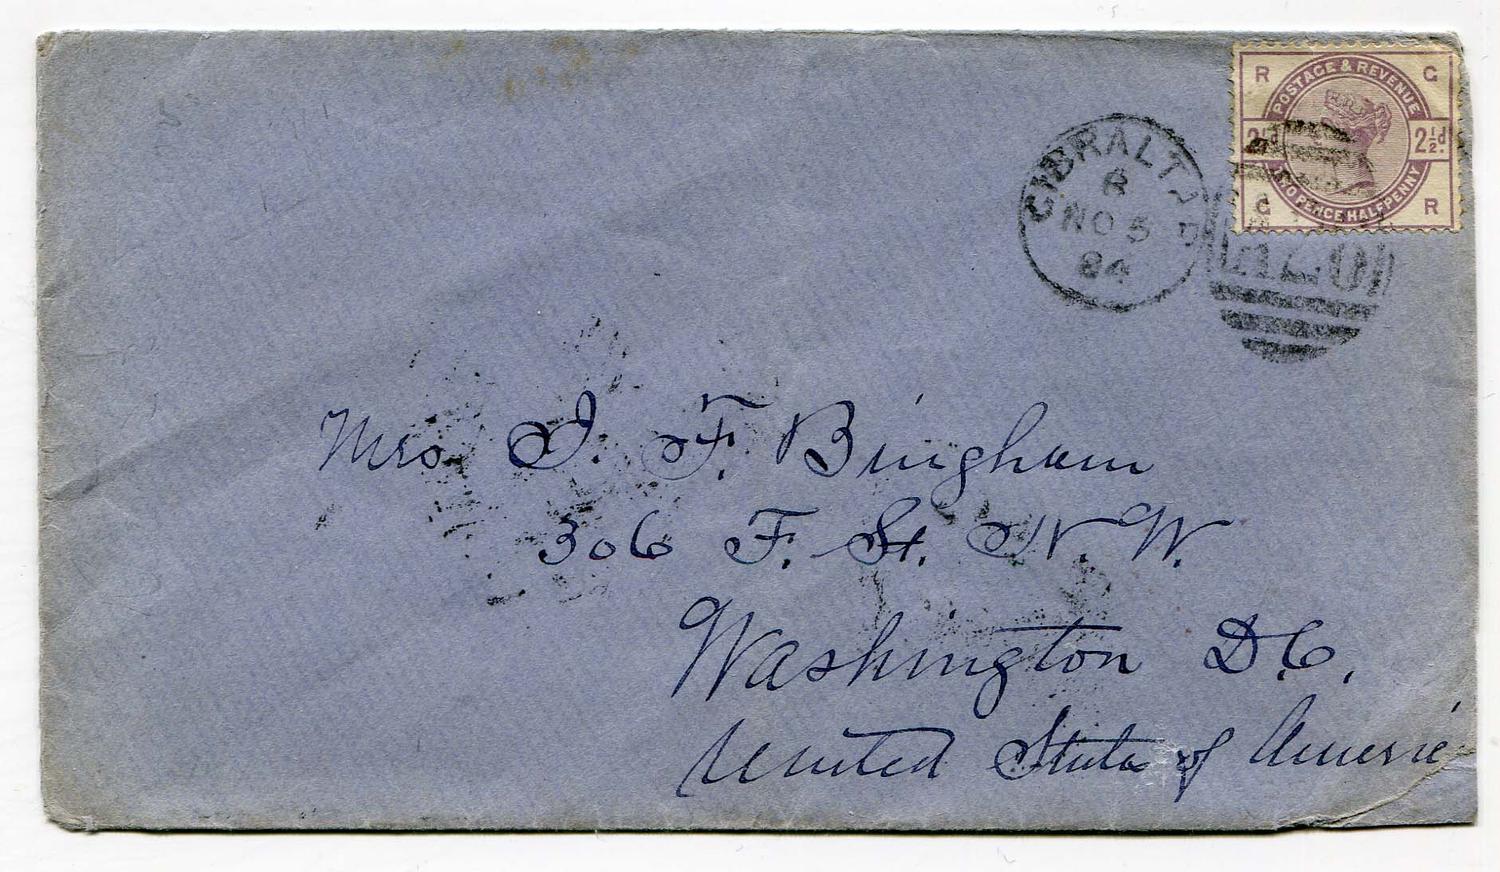 R G
POSTAGE & REVENUE
2½d. 2½d.
TWO PENCE HALFPENNY
G R
GIBRALTAR
R
NO 5
84
A26
Mrs. J. F. Bingham
306 F. St. N. W.
Washington D.C.
United States of Americ